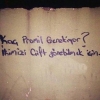 Kaç Promil Gerekiyor?
Hüznü Çift görebilmek için.